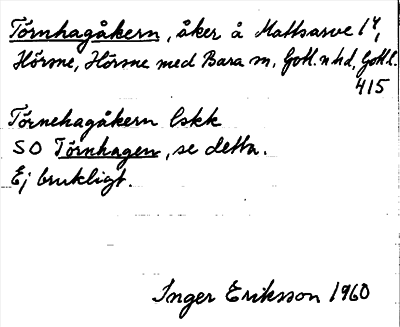 Törnhagåkern, åker å Mattsarve 1⁴,
Hörsne, Hörsne med Bara sn, Gotl. n hd, Gotl. l.
415
Törnehagåkern lskk
SO Törnhagen, se detta.
Ej brukligt.
Inger Eriksson 1960